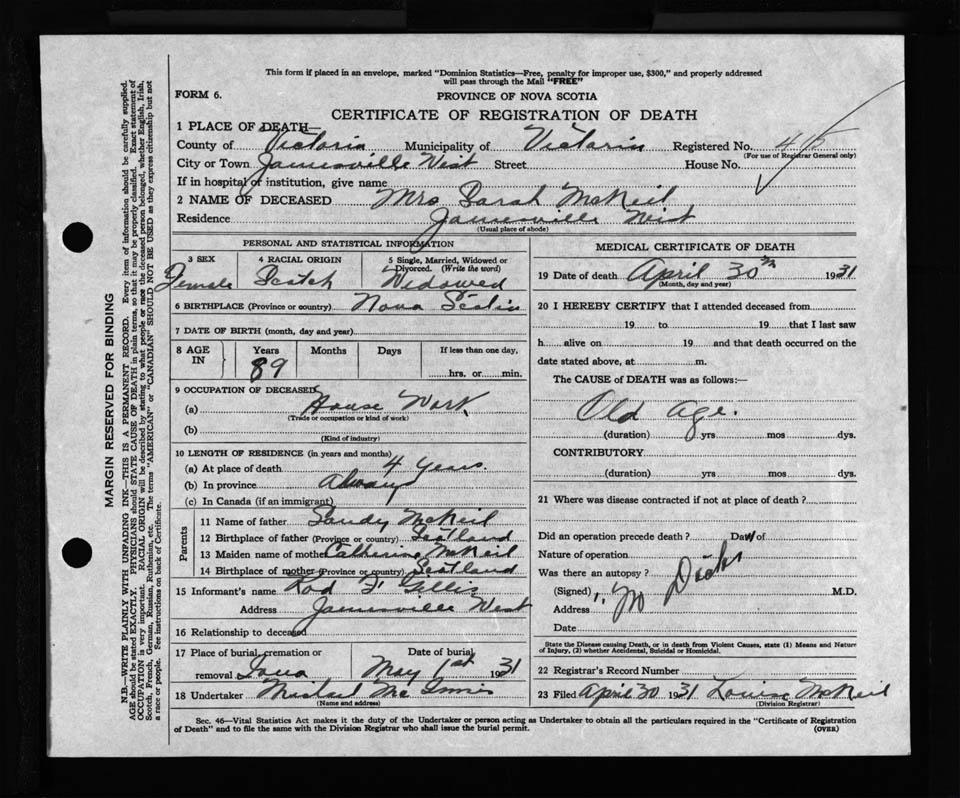 This form if placed in an envelope, marked "Dominion Statistics—Free, penalty for improper use, $300," and properly addressed
will pass through the Mail "FREE"
FORM 6.
PROVINCE OF NOVA SCOTIA
CERTIFICATE OF REGISTRATION OF DEATH
1 PLACE OF DEATH—
County of Victoria Municipality of Victoria Registered No.
(For use of Registrar General only)
City or Town Jamesville West Street House No.
If in hospital or institution, give name
2 NAME OF DECEASED Mrs Sarah McNeil
Residence Jamesville West
(Usual place of abode)
MARGIN RESERVED FOR BINDING
N.B.—WRITE PLAINLY WITH UNFADING INK—THIS IS A PERMANENT RECORD. Every item of information should be carefully supplied.
AGE should be stated EXACTLY. PHYSICIANS should STATE CAUSE OF DEATH in plain terms, so that it may be properly classified. Exact statement of
OCCUPATION is very important. RACIAL ORIGIN will be described by stating to what people or race the deceased person belonged, whether English, Irish,
Scotch, French, German, Russian, Ruthenian, etc. The terms "AMERICAN" or "CANADIAN" SHOULD NOT BE USED as they express citizenship but not
a race or people. See instructions on back of Certificate.
PERSONAL AND STATISTICAL INFORMATION
3 SEX
Female
4 RACIAL ORIGIN
Scotch
5 Single, Married, Widowed or
Divorced. (Write the word)
Widowed
6 BIRTHPLACE (Province or country) Nova Scotia
7 DATE OF BIRTH (month, day and year)
8 AGE
IN
Years
89
Months
Days
If less than one day,
hrs. or min.
9 OCCUPATION OF DECEASED
(a) House Work
(Trade or occupation or kind of work)
(b)
(Kind of industry)
10 LENGTH OF RESIDENCE (in years and months)
(a) At place of death 4 years
(b) In province Always
(c) In Canada (if an immigrant)
Parents
11 Name of father Sandy McNeil
12 Birthplace of father (Province or country) Scotland
13 Maiden name of mother Catherine McNeil
14 Birthplace of mother (Province or country) Scotland
15 Informant's name Rod F Gillis
Address Jamesville West
16 Relationship to deceased
17 Place of burial, cremation or
removal Iona
Date of burial
May 1st 1931
18 Undertaker Michael Mc Innis
(Name and address)
MEDICAL CERTIFICATE OF DEATH
19 Date of death April 30th 1931
(Month, day and year)
20 I HEREBY CERTIFY that I attended deceased from
19 to 19 that I last saw
h alive on 19 and that death occurred on the
date stated above, at m.
The CAUSE of DEATH was as follows:—
Old age.
(duration) yrs mos dys.
CONTRIBUTORY
(duration) yrs mos dys.
21 Where was disease contracted if not at place of death?
Did an operation precede death? Date of
Nature of operation
Was there an autopsy?
(Signed) No Doctor M.D.
Address
Date
State the Disease causing Death, or in death from Violent Causes, state (1) Means and Nature
of Injury, (2) whether Accidental, Suicidal or Homicidal.
22 Registrar's Record Number
23 Filed April 30 1931 Louise McNeil
(Division Registrar)
Sec. 46—Vital Statistics Act makes it the duty of the Undertaker or person acting as Undertaker to obtain all the particulars required in the "Certificate of Registration
of Death" and to file the same with the Division Registrar who shall issue the burial permit.
(OVER)